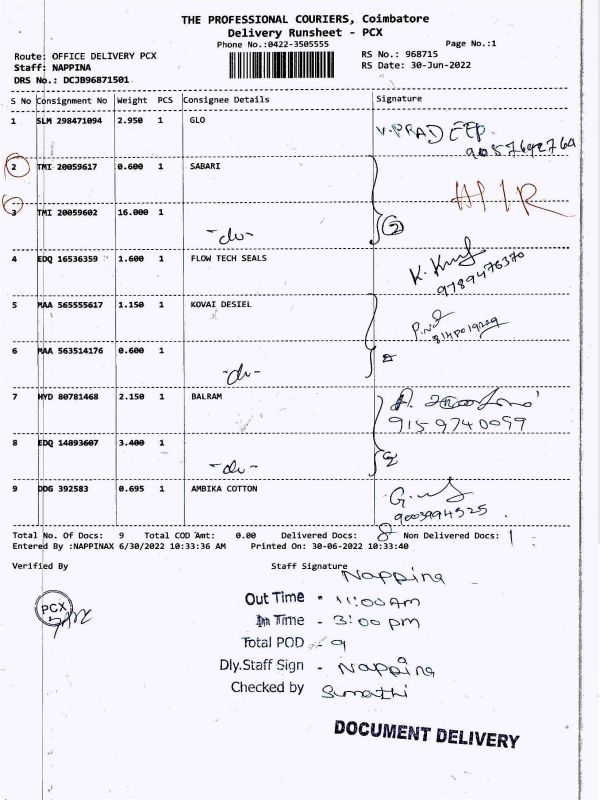 THE PROFESSIONAL COURIERS, Coimbatore
Delivery Runsheet - PCX
Phone No.:0422-3505555 Page No.:1
Route: OFFICE DELIVERY PCX RS No.: 968715
Staff: NAPPINA RS Date: 30-Jun-2022
DRS No.: DCJB96871501
S No Consignment No Weight PCS Consignee Details Signature
1 SLM 298471094 2.950 1 GLO
V.PRADEEP.
9057642769
2 TMI 20059617 0.600 1 SABARI
3 TMI 20059602 16.000 1
-do- 2
4 EDQ 16536359 1.600 1 FLOW TECH SEALS
9789476370
5 MAA 565555617 1.150 1 KOVAI DESIEL
6 MAA 563514176 0.600 1
-do- 2
7 HYD 80781468 2.150 1 BALRAM
9159740099
8 EDQ 14893607 3.400 1
-do- 2
9 DDG 392583 0.695 1 AMBIKA COTTON
9003994525
Total No. Of Docs: 9 Total COD Amt: 0.00 Delivered Docs: 8 Non Delivered Docs: 1
Entered By :NAPPINAX 6/30/2022 10:33:36 AM Printed On: 30-06-2022 10:33:40
Verified By Staff Signature Nappina
PCX
Out Time - 11:00 Am
In Time - 3:00 pm
Total POD - 9
Dly.Staff Sign - Nappina
Checked by Sumathi
DOCUMENT DELIVERY